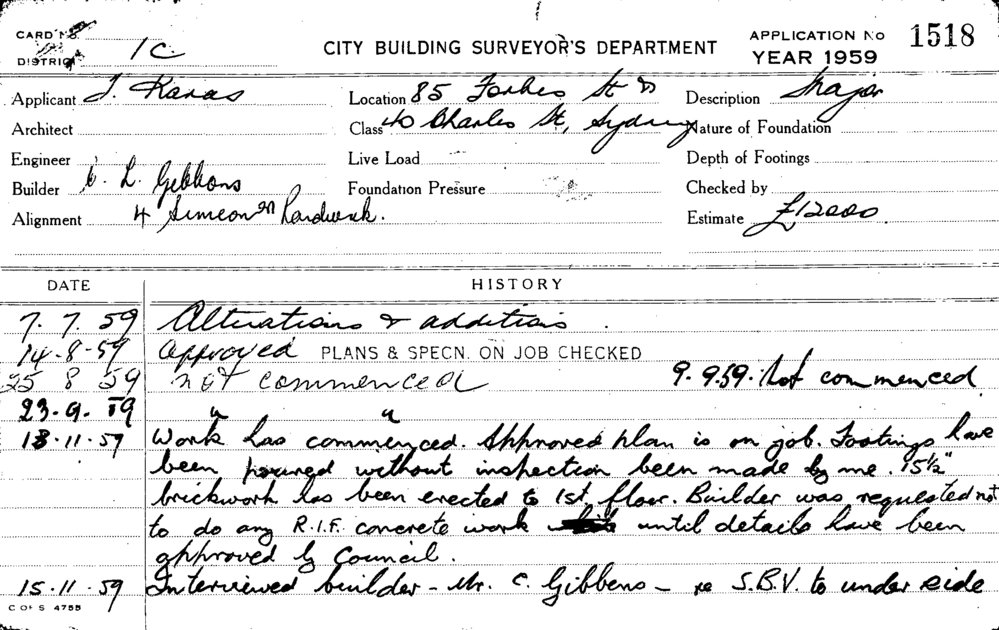 CARD No.
DISTRICT 1C.
CITY BUILDING SURVEYOR'S DEPARTMENT
APPLICATION No 1518
YEAR 1959
Applicant J. Karas
Location 85 Forbes St &
Description Major
Architect
Class 40 Charles St, Sydney
Nature of Foundation
Engineer
Live Load
Depth of Footings
Builder C. L. Gibbons
Foundation Pressure
Checked by
Alignment 4 Simeon
Estimate £12000
DATE HISTORY
7. 7. 59 Alterations & additions.
14-8-59 Approved PLANS & SPECN. ON JOB CHECKED
25 8 59 not commenced 9.9.59. Not commenced
23.9.59 " "
13.11.59 Work has commenced. Approved plan is on job. Footings have
been poured without inspection been made by me. 15½"
brickwork has been erected to 1st floor. Builder was requested not
to do any R.I.F. concrete work until details have been
approved by Council.
15.11.59 Interviewed builder - Mr. C. Gibbens - re S.B.V. to under side
C OF S 4755